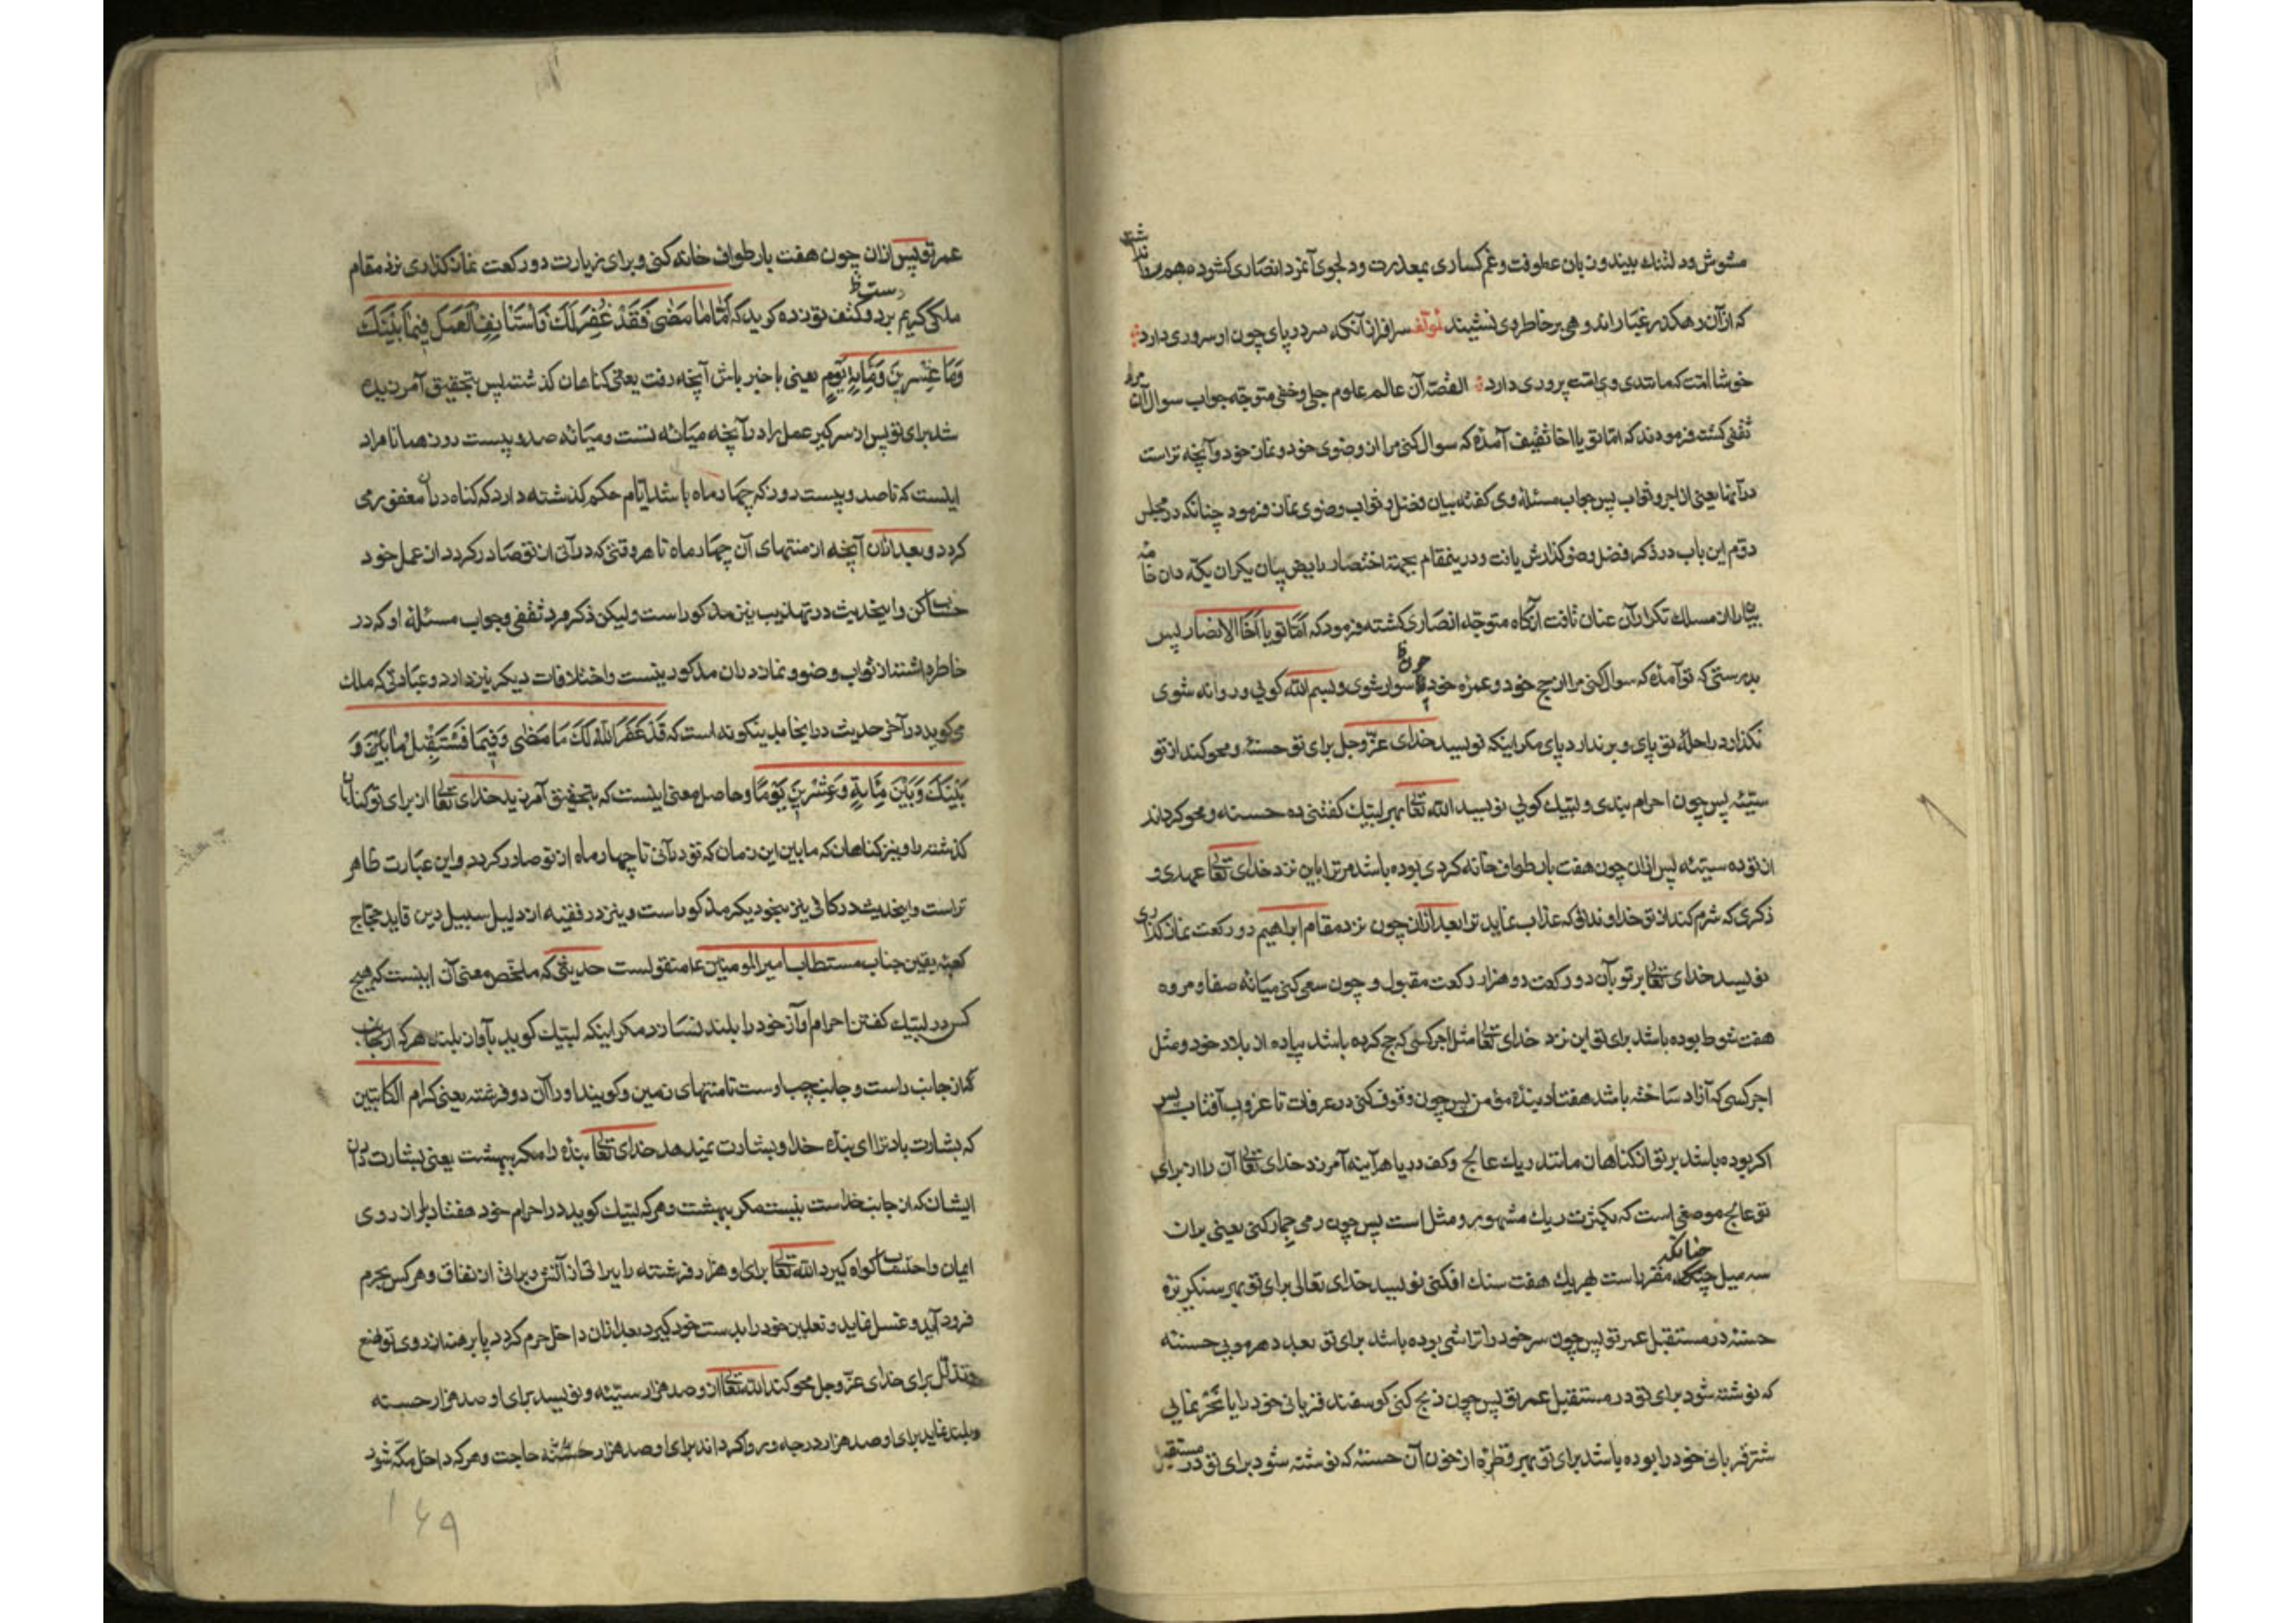 مشوش و دلتنك بیند و زبان عطوفت و غم کساری بمعذرت و دلجوی آنمرد انصاری کشوده
که از آن رهکذر غبار اندوهی بر خاطر وی ننشیند لمؤلفه سرافراز آنکه سر در پای چون او سروری دارد
خوشا امت که مانند وی امت پروری دارد القصه آن عالم علوم جلی و خفی متوجه جواب سوال آن مرد
ثقفی کشت فرمودند که اما تو یا اخا ثقیف آمدهٔ که سوال کنی مرا از وضوی خود و نماز خود و آنچه تراست
در آنها یعنی از اجر و ثواب پس جواب مسئلهٔ وی کفته بیان فضل و ثواب وضوی نماز فرمود چنانکه در مجلس
دوم این باب در ذکر فضل وضو کذارش یافت و درینمقام بجهة اختصار
از مسلك تکرار آن عنان تافت آنکاه متوجه انصاری کشته فرمود که اما تو یا اخا الانصار پس
بدرستی که تو آمدهٔ که سوال کنی مرا از حج خود و عمرهٔ خود چون سوار شوی و بسم الله کویی و روانه شوی
نکذارد راحلهٔ تو پای و برندارد پای مکر اینکه نویسد خدای عز و جل برای تو حسنهٔ و محو کند از تو
سیئه پس چون احرام بندی و لبیك کویی نویسد الله تعالی بهر لبیك کفتنی ده حسنه و محو کرداند
از تو ده سیئه پس ازان چون هفت بار طواف خانه کردی بوده باشد مر ترا باین نزد خدای تعالی عهدی و
ذکری که شرم کند از تو خداوند آنکه عذاب نماید ترا بعد ازان چون نزد مقام ابراهیم دو رکعت نماز کذاری
نویسد خدای تعالی بر تو بآن دو رکعت دو هزار رکعت مقبول و چون سعی کنی میانهٔ صفا و مروه
هفت شوط بوده باشد برای تو این نزد خدای تعالی مثل اجر کسی که حج کرده باشد پیاده از بلاد خود و مثل
اجر کسی که آزاد ساخته باشد هفتاد بندهٔ مؤمن پس چون وقوف کنی در عرفات تا غروب آفتاب پس
اکر بوده باشد بر تو از کناهان مانند ریك عالج و کف دریا هر آینه آمرزد خدای تعالی آن را از برای
تو عالج موضعی است که بکثرت ریك مشهور و مثل است پس چون رمی جمار کنی یعنی بران
سه میل چنانکه مقرر است بهر یك هفت سنك افکنی نویسد خدای تعالی برای تو بهر سنکریزه
حسنه در مستقبل عمر تو پس چون سر خود را تراشی بوده باشد برای تو بعدد هر مویی حسنه
که نوشته شود برای تو در مستقبل عمر تو پس چون ذبح کنی کوسفند قربانی خود را یا نحر نمایی
شتر قربانی خود را بوده باشد برای تو بهر قطرهٔ از خون آن حسنه که نوشته شود برای تو در مستقبل
عمر تو پس ازان چون هفت بار طواف خانه کنی و برای زیارت دو رکعت نماز کذاری نزد مقام
ملکی کریم بر دو کتف تو زده کوید که اما ما مضی فقد غفر لك فاستانف العمل فیما بینك
و ما عشرین و مایة یوم یعنی با خبر باش آنچه رفت یعنی کناهان کذشته پس بتحقیق آمرزیده
شد برای تو پس از سر کیر عمل را در آنچه میانهٔ تست و میانهٔ صد و بیست روز همانا مراد
اینست که تا صد و بیست روز که چهار ماه باشد ایام حکم کذشته دارد که کناه دران مغفور می
کردد و بعد ازان آنچه از منتهای آن چهار ماه تا هر وقتی که در آنی از تو صادر کردد از عمل خود
حساب کن و اینحدیث در تهذیب نیز مذکور است ولیکن ذکر مرد ثقفی و جواب مسئلهٔ او که در
خاطر داشت از ثواب وضو و نماز دران مذکور نیست و اختلافات دیکر نیز دارد و عبارتی که ملك
می کوید در آخر حدیث در اینجا بدینکونه است که قد غفر الله لك ما مضی و فیما تستقبل ما بین و
بینك و بین مائة و عشرین یوما و حاصل معنی اینست که بتحقیق آمرزید خدای تعالی از برای تو کناهان
کذشته را و نیز کناهان که ما بین این زمان که تو درآنی تا چهار ماه از تو صادر کردد و این عبارت ظاهر
تر است و اینحدیث در کافی نیز بنحو دیکر مذکور است و نیز در فقیه از دلیل سبیل دین قاید حجاج
کعبهٔ یقین جناب مستطاب امیر المومنین ع منقولست حدیثی که ملخص معنی آن اینست که هیچ
کس در لبیك کفتن احرام آواز خود را بلند نسازد مکر اینکه لبیك کوید بآواز بلند هر که از جانب
کنار جانب راست و جانب چپ اوست تا منتهای زمین و کویند او را آن دو فرشته یعنی کرام الکاتبین
که بشارت باد ترا ای بندهٔ خدا و بشارت نمیدهد خدای تعالی بنده را مکر ببهشت یعنی بشارت دادن
ایشان که از جانب خداست نیست مکر ببهشت و هر که لبیك کوید در احرام خود هفتاد بار از روی
ایمان و احتساب کواه کیرد الله تعالی برای او هزار فرشته را ببراتی از آتش و براتی از نفاق و هر کس بحرم
فرود آید و غسل نماید و نعلین خود را بدست خود کیرد بعد ازان داخل حرم کردد پا برهنه از روی تواضع
و تذلل برای خدای عز و جل محو کند الله تعالی از و صد هزار سیئه و نویسد برای او صد هزار حسنه
و بلند نماید برای او صد هزار درجه و روا کرداند برای او صد هزار حاجت و هر که داخل مکه شود
۱۶۹